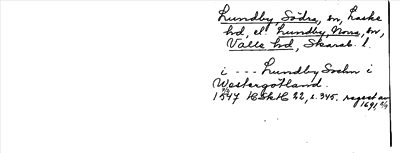 Lundby, Södra, sn, Laske
hd, el. Lundby, Norra, sn,
Valle hd, Skarab. l.
i --- Lundby Sochn i
Westergötland.
1547 HSkH 22, s. 345. regest av
1691, 2/4